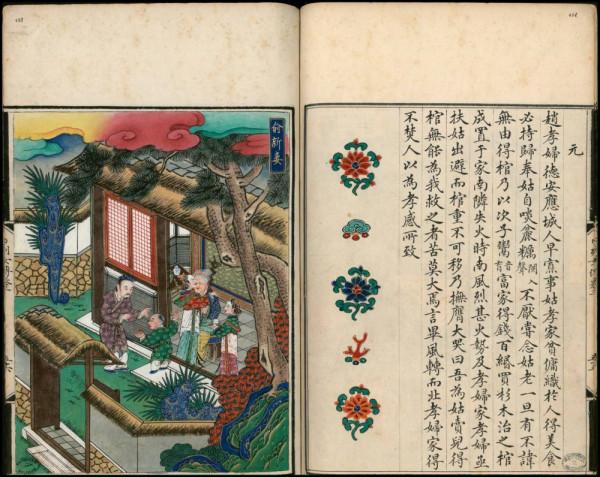 元
趙孝婦德安應城人早寡事姑孝家貧傭織於人得美食
必持歸奉姑自啖麄糲闌入聲不厭嘗念姑老一旦有不諱
無由得棺乃以次子鬻音育富家得錢百緡買杉木治之棺
成置于家南隣失火時南風烈甚火勢及孝婦家孝婦亟
扶姑出避而棺重不可移乃撫膺大哭曰吾為姑賣兒得
棺無能為我救之者苦莫大焉言畢風轉而北孝婦家得
不焚人以為孝感所致
俞新妻